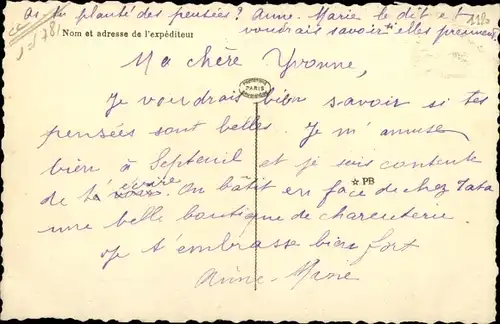 as-tu planté des pensées? Anne-Marie le dit et
voudrais savoir si elles prennent
Nom et adresse de l'expéditeur
Ma chère Yvonne,
PARIS
Je voudrais bien savoir si tes
pensées sont belles. Je m'amuse
bien à Septeuil et je suis contente
☆ PB
de t'écrire. On bâtit en face de chez Tata
une belle boutique de charcuterie.
Je t'embrasse bien fort
Anne-Marie